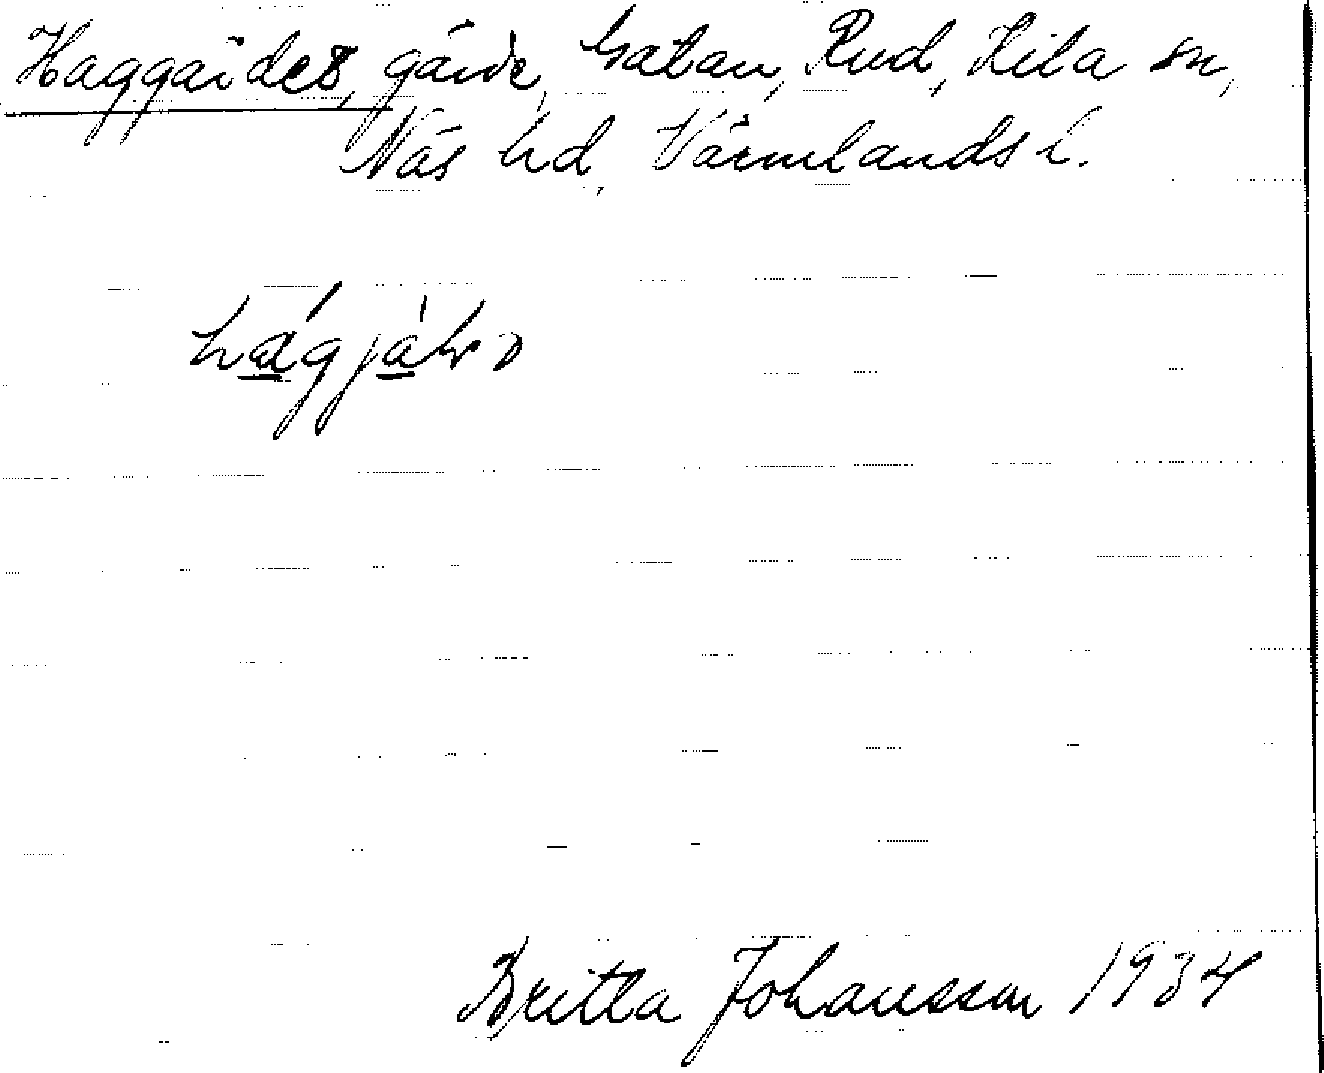 Haggärdet, gärde, Gatan, Rud, Kila sn,
Näs hd, Värmlands l.
Britta Johansson 1934